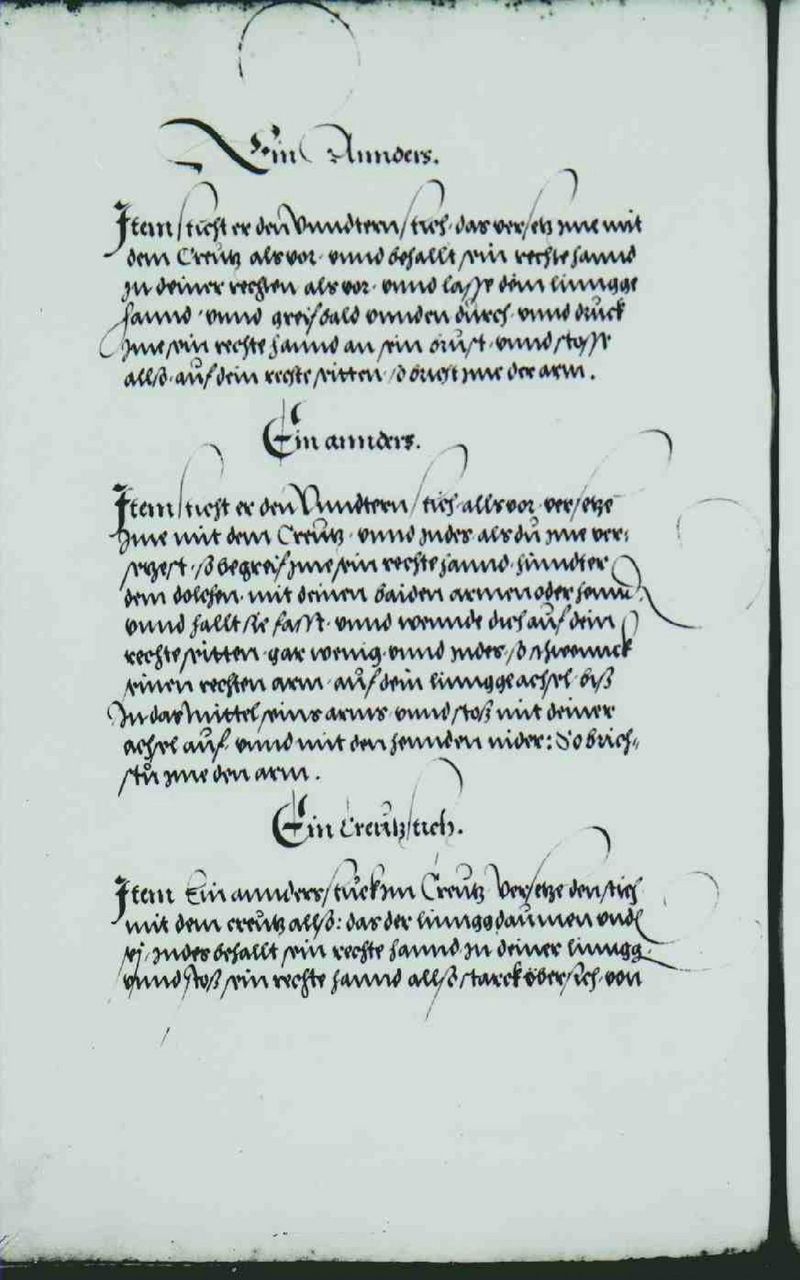 Ein Annders.
Item sticht er den Vnndtern stich. das versetz jme mit
dem Creutz als vor. vnnd behallt sein rechte hannd
jn deiner rechten als vor. vnnd lasse dein linngge
hannd. vnnd greif bald vnnden durch. vnnd druck
jme sein rechte hannd an sein brust. vnnd stosse
allso. auf dein rechte seitten. so bricht jme der arm.
Ein annders.
Item sticht er den Vnndtern stich. alls vor. versetze
jme mit dem Creutz. vnnd jndes als du jme ver-
setzest. so begreif jme sein rechte hannd. hinndter
dem dolchen. mit deinen baiden armen oder hennd.
vnnd hallt sie fasst. vnnd wennde dich auf dein
rechte seitten. gar wenig. vnnd jndes. so schwennck
seinen rechten arm. auf dein linngge achsel. biß
jn das mittel seins arms. vnnd stoß mit deiner
achsel auf. vnnd mit den hennden nider: So brich-
stu jme den arm.
Ein Creutzstich.
Item Ein annders stuck im Creutz. Versetze den stich
mit dem creutz allso: das der linngg daumen vnd
sej. jndes behallt sein rechte hannd jn deiner lingg.
vnnd stoß sein rechte hannd allso starck übersich. von